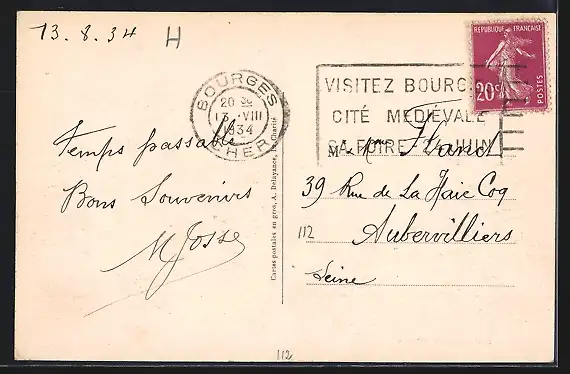 13.8.34
H
BOURGES
20 30
13 VIII
1934
CHER
VISITEZ BOURGES
CITÉ MEDIÉVALE
SA FOIRE JUIN
REPUBLIQUE FRANÇAISE
20c
POSTES
Temps passable
Bons Souvenirs
M Josse
Cartes postales en gros, A. Delayance, la Charité
Mr & Mme
39 Rue de La Haie Coq
112
Aubervilliers
Seine
112